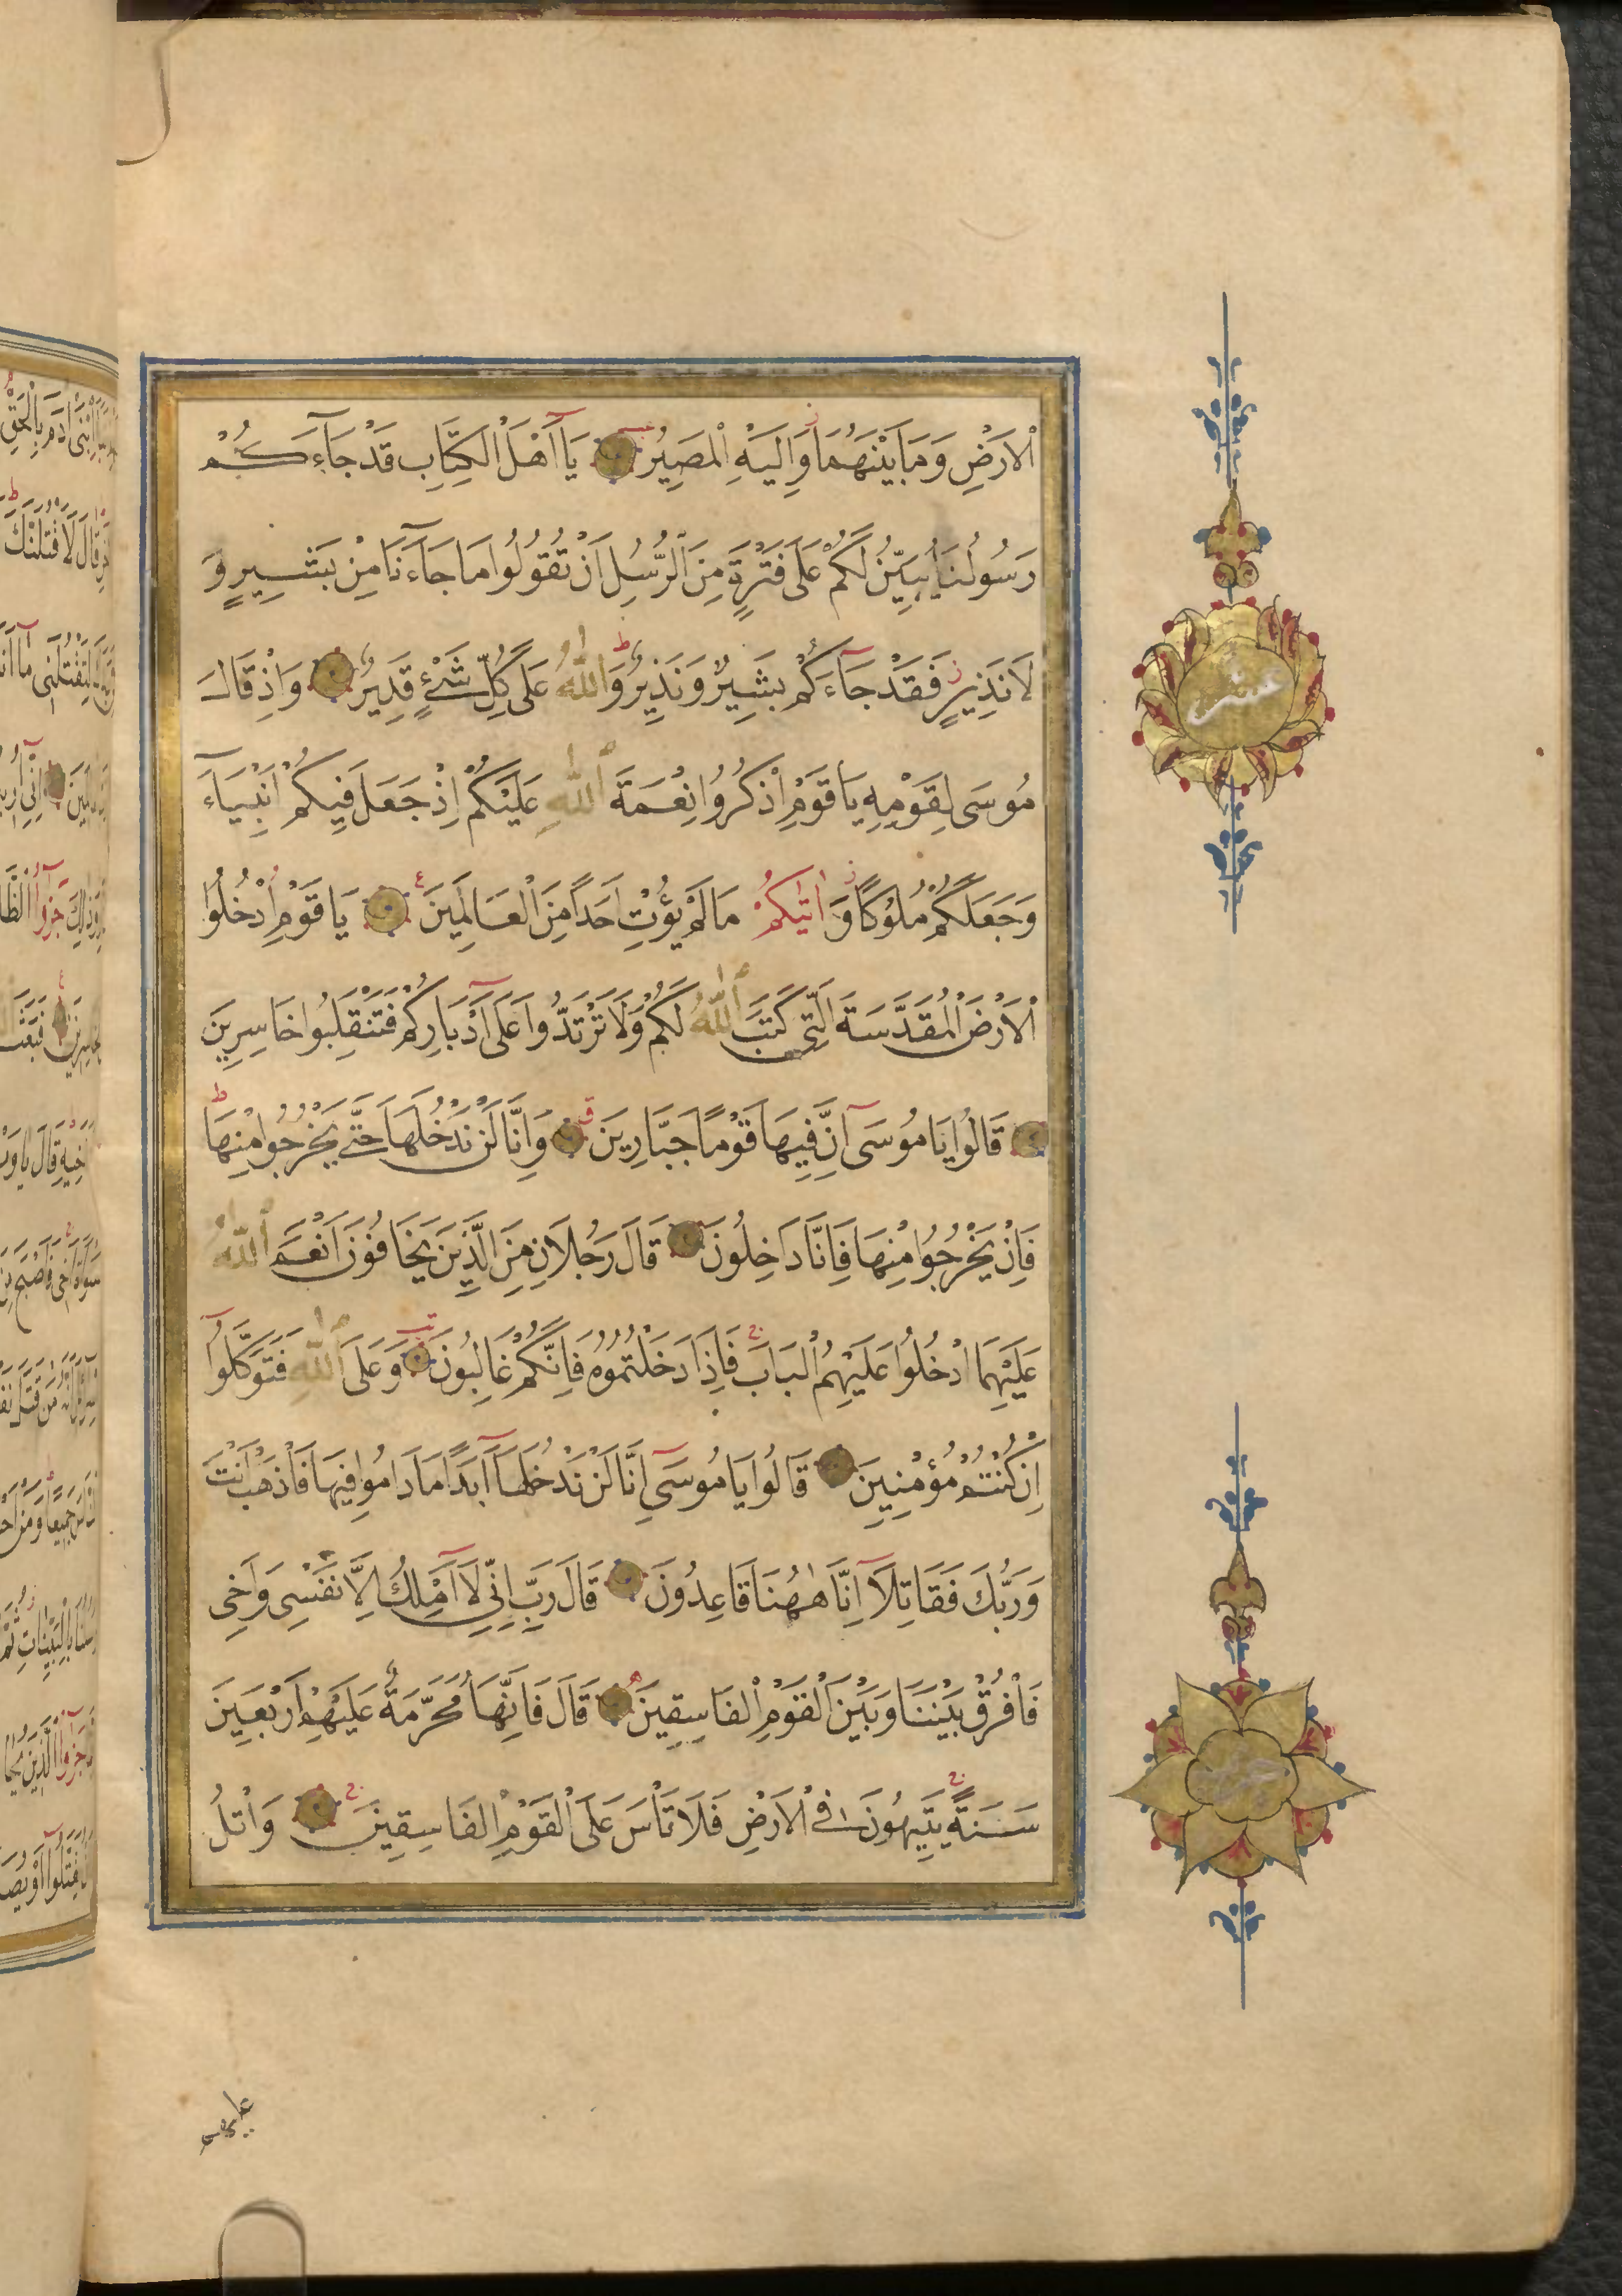 اْلاَرْضِ وَمَا بَيْنَهُمَا وَاِلَيْهِ اْلمَصِيرُ يَٓا اَهْلَ اْلكِتَابِ قَدْ جَٓاءَكُمْ
رَسُولُنَا يُبَيِّنُ لَكُمْ عَلَى فَتْرَةٍ مِنَ الرُّسُلِ اَنْ تَقُولُوا مَا جَٓاءَنَا مِنْ بَشِيرٍ وَ
لَا نَذِيرٍ فَقَدْ جَٓاءَكُمْ بَشِيرٌ وَنَذِيرٌ وَاللّٰهُ عَلَى كُلِّ شَىْءٍ قَدِيرٌ وَاِذْ قَالَ
مُوسَى لِقَوْمِهِ يَا قَوْمِ اذْكُرُوا نِعْمَةَ اللّٰهِ عَلَيْكُمْ اِذْ جَعَلَ فِيكُمْ اَنْبِيَٓاءَ
وَجَعَلَكُمْ مُلُوكًا وَاٰتٰيكُمْ مَا لَمْ يُؤْتِ اَحَدًا مِنَ اْلعَالَمِينَ يَا قَوْمِ ادْخُلُوا
اْلاَرْضَ اْلمُقَدَّسَةَ الَّتِى كَتَبَ اللّٰهُ لَكُمْ وَلَا تَرْتَدُّوا عَلَٓى اَدْبَارِكُمْ فَتَنْقَلِبُوا خَاسِرِينَ
قَالُوا يَا مُوسَٓى اِنَّ فِيهَا قَوْمًا جَبَّارِينَ وَاِنَّا لَنْ نَدْخُلَهَا حَتَّى يَخْرُجُوا مِنْهَا
فَاِنْ يَخْرُجُوا مِنْهَا فَاِنَّا دَاخِلُونَ قَالَ رَجُلَانِ مِنَ الَّذِينَ يَخَافُونَ اَنْعَمَ اللّٰهُ
عَلَيْهِمَا ادْخُلُوا عَلَيْهِمُ اْلبَابَ فَاِذَا دَخَلْتُمُوهُ فَاِنَّكُمْ غَالِبُونَ وَعَلَى اللّٰهِ فَتَوَكَّلُٓوا
اِنْ كُنْتُمْ مُؤْمِنِينَ قَالُوا يَا مُوسَٓى اِنَّا لَنْ نَدْخُلَهَٓا اَبَدًا مَا دَامُوا فِيهَا فَاذْهَبْ اَنْتَ
وَرَبُّكَ فَقَاتِلَٓا اِنَّا هٰهُنَا قَاعِدُونَ قَالَ رَبِّ اِنِّى لَٓا اَمْلِكُ اِلَّا نَفْسِى وَاَخِى
فَافْرُقْ بَيْنَنَا وَبَيْنَ اْلقَوْمِ اْلفَاسِقِينَ قَالَ فَاِنَّهَا مُحَرَّمَةٌ عَلَيْهِمْ اَرْبَعِينَ
سَنَةً يَتِيهُونَ فِى اْلاَرْضِ فَلَا تَأْسَ عَلَى اْلقَوْمِ اْلفَاسِقِينَ وَاتْلُ
عشر
عليهم